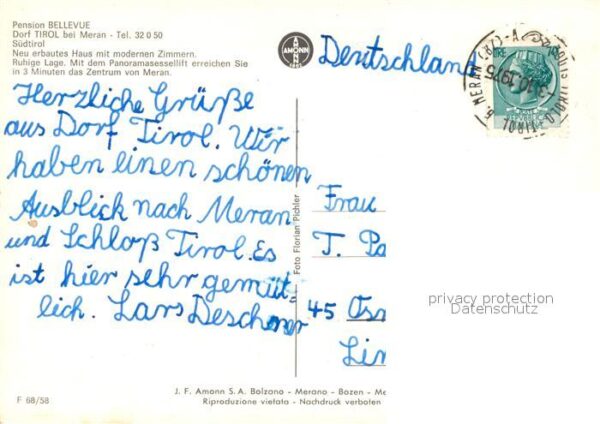 Pension BELLEVUE
Dorf TIROL bei Meran - Tel. 32 0 50
Südtirol
Neu erbautes Haus mit modernen Zimmern.
Ruhige Lage. Mit dem Panoramasessellift erreichen Sie
in 3 Minuten das Zentrum von Meran.
AMONN
Deutschland
Herzliche Grüße
aus Dorf Tirol. Wir
haben einen schönen
Ausblick nach Meran
und Schloß Tirol. Es
ist hier sehr gemüt-
lich. Lars Deschner
Foto Florian Pichler
Frau
T. Pa
45 Osn
Lin
privacy protection
Datenschutz
J. F. Amonn S.A. Bolzano - Merano - Bozen - Me
Riproduzione vietata - Nachdruck verboten
F 68/58